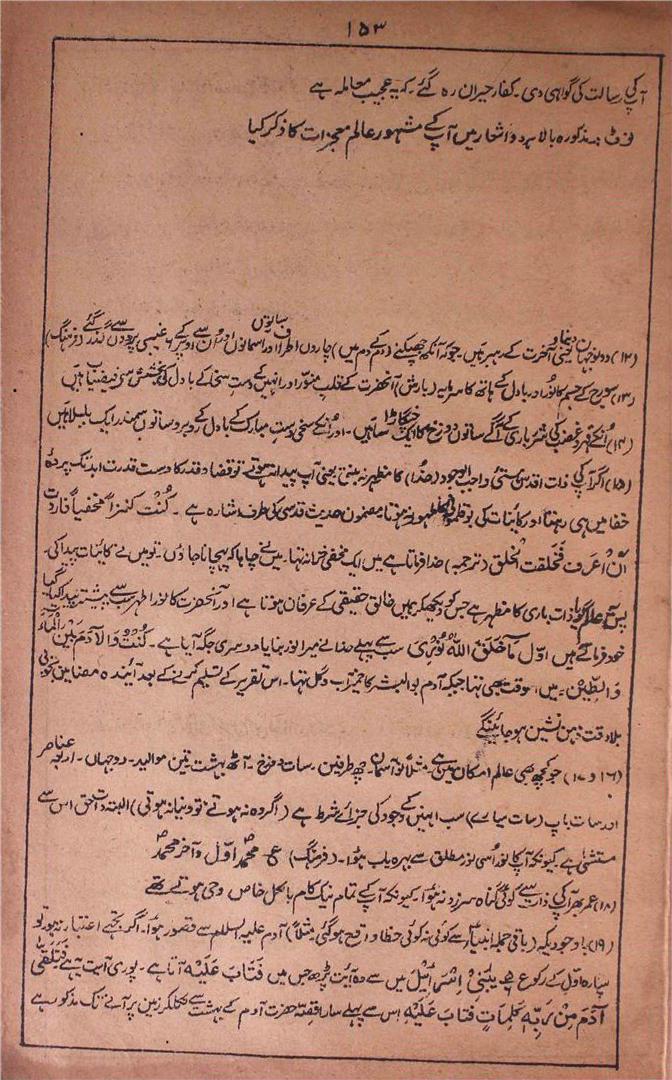 ۱۵۳
آپ کی رسالت کی گواہی دی۔ کفار حیران رہ گئے۔ کہ یہ عجیب معاملہ ہے
نوٹ :۔ مذکورہ بالا ہر دو اشعار میں آپ کے مشہور عالم معجزات کا ذکر کیا
(۱۲) دونوں جہان یعنی دنیا و آخرت کے رہبر ہیں۔ جو کہ آنکھ جھپکنے (دم کے دم میں) چاروں اطراف اور ساتوں آسمانوں اور ان سے اوپر کے ۶ غیبی پردوں سے گذر گئے (فرہنگ)
(۱۳) سورج کے جسم کا نور اور بادل کے ہاتھ کا سرمایہ (بارش) آنحضرت کے قلب منور اور انہیں کے دست سخا کے بادل کی بخشش سے فیضیاب ہیں
(۱۴) اُنکے قہر و غضب کی شرر باری کے آگے ساتوں دوزخ کا ایک چنگارا سا ہیں۔ اور اُنکے سخی دست مبارک کے بادل کے روبرو ساتوں سمندر ایک بلبلا ہیں
(۱۵) اگر آپ کی ذات اقدس ہستی واجب الوجود (خدا) کا مظہر نہ بنتی یعنی آپ پیدا نہ ہوتے تو قضا و قدر کا دست قدرت ابد تک پردہ
خفا میں ہی رہتا اور کائنات کی بوقلمونی کا ظہور نہ ہوتا مضمون حدیث قدسی کی طرف اشارہ ہے۔ کُنْتُ کَنْزاً مَخْفِیاً فَاَرَدتُ
اَنْ اُعْرَفَ فَخَلَقْتُ الْخَلْقَ (ترجمہ) خدا فرماتا ہے میں ایک مخفی خزانہ تھا۔ میں نے چاہا کہ پہچانا جاؤں۔ تو میں نے کائنات پیدا کی۔
پس یہ عالم گویا ذات باری کا مظہر ہے جس کو دیکھ کر ہمیں خالق حقیقی کے عرفان ہوتا ہے اور آنحضرت کا نور اطہر سب سے پیشتر پیدا کیا گیا
خود فرماتے ہیں اوّل مَا خَلَقَ اللّٰہُ نُوْرِیْ سب سے پہلے خدا نے میرا نور بنایا دوسری جگہ آیا ہے۔ کُنْتُ وَالْآدَمُ بَیْنَ الْمَاءِ
وَالطِّیْن۔ میں اسوقت بھی تھا جبکہ آدم ابوالبشر کا خمیر آب و گل تھا۔ اس تقریر کے تسلیم کرنے کے بعد آئندہ مضامین بخوبی
بلا دقت ذہن نشین ہو جائینگے
(۱۶ و ۱۷) جو کچھ بھی عالم امکان میں ہے۔ مثلاً نو آسمان چھ طرفین۔ سات دوزخ۔ آٹھ بہشت تین موالید۔ دو جہاں۔ اربعہ عناصر
اور سات باپ (سات سیارے) سب انہیں کے وجود کی جزائے شرط ہے (اگر وہ نہ ہوتے تو دنیا نہ ہوتی) البتہ ذات حق اس سے
مستثنیٰ ہے۔ کیونکہ آپ کا نور اُسی نور مطلق سے بہرہ یاب ہوا۔ (فرہنگ) ع محمد اوّل و آخر محمد
(۱۸) عمر بھر آپ کی ذات سے کوئی گناہ سرزد نہ ہوا۔ کیونکہ آپ کے تمام نیک کام بالکل خاص وحی ہوتے تھے
(۱۹) باوجودیکہ (باقی جملہ انبیا) سے کوئی نہ کوئی خطا واقع ہو گئی مثلاً) آدم علیہ السلام سے قصور ہوا۔ اگر تجھے اعتبار نہ ہو تو
سپارہ اوّل کے رکوع یٰبَنِیْ اِسْرَائِیْلَ میں سے وہ آیت پڑھ جس میں فَتَابَ عَلَیْہِ آتا ہے۔ پوری آیت یہ ہے فَتَلَقّٰی
آدَمُ مِنْ رَبِّہٖ کَلِمَاتٍ فَتَابَ عَلَیْہِ اس سے پہلے سارا قصہ حضرت آدم کے بہشت سے نکلکر زمین پر آنے تک مذکور ہے